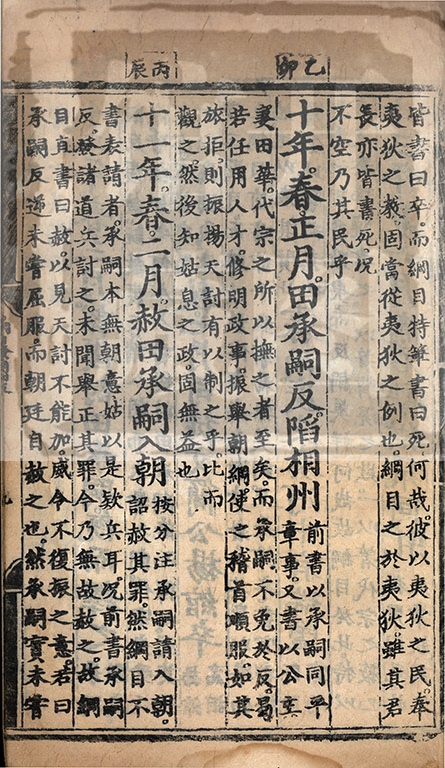 乙卯
皆書曰卒而綱目特筆書曰死何哉彼以夷狄之民奉
夷狄之教固當從夷狄之例也綱目之於夷狄雖其君
長亦皆書死況
不空乃其民乎
十年春正月田承嗣反陷相州
前書以承嗣同平
章事又書以公主
妻田華代宗之所以撫之者至矣而承嗣不免於反曷
若任用人才修明政事振舉朝綱使之稽首順服如其
旅拒則振揚天討有以制之乎比而
觀之然後知姑息之政固無益也
丙辰
十一年春二月赦田承嗣入朝
按分注承嗣請入朝
詔赦其罪然綱目不
書表請者承嗣本無朝意姑以是欵兵耳況前書承嗣
反發諸道兵討之未聞舉正其罪今乃無故赦之故綱
目直書曰赦以見天討不能加威令不復振之意若曰
承嗣反逆未嘗屈服而朝廷自赦之也然承嗣實未嘗